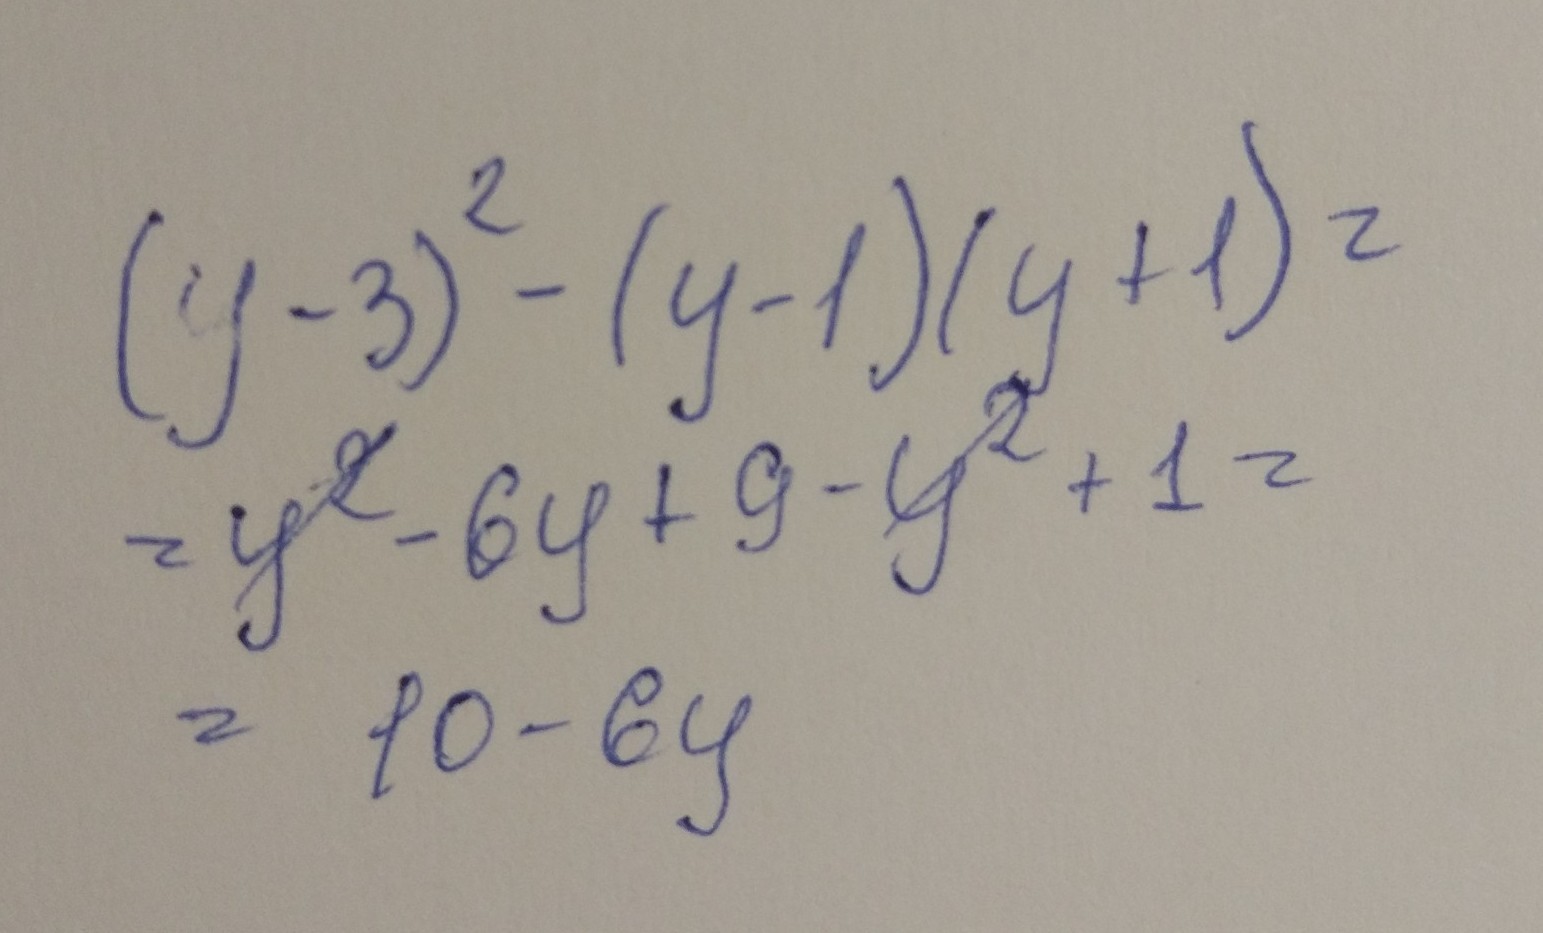 (y-3)² - (y-1)(y+1) =
= y² - 6y + 9 - y² + 1 =
= 10 - 6y